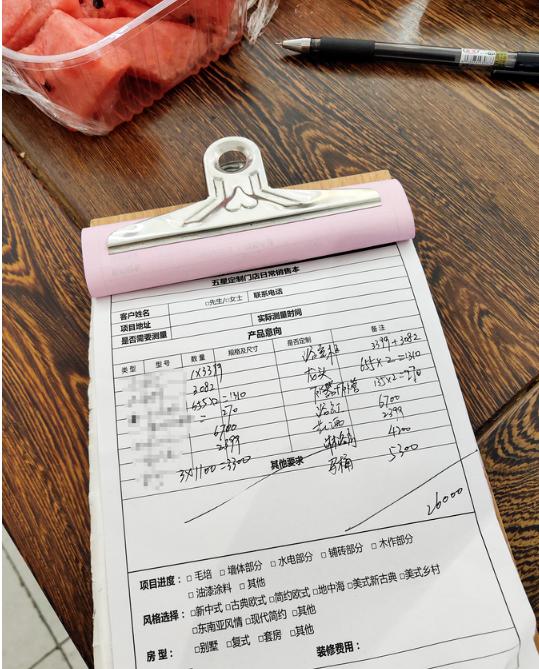 五星定制门店日常销售本
客户姓名 □先生/□女士 联系电话
项目地址 实际测量时间
是否需要测量 产品意向
类型 型号 数量 规格及尺寸 是否定制 备注
1×3399 浴室柜 3399+3082
3082 龙头 655×2=1310
655×2=1310 135×2=270
=270 浴缸 6700
6700 2399
2399 淋浴房 4200
3×1100=3300 其他要求 马桶 5300
26000
项目进度： □毛培 □墙体部分 □水电部分 □铺砖部分 □木作部分
□油漆涂料 □其他
风格选择： □新中式 □古典欧式 □简约欧式 □地中海 □美式新古典 □美式乡村
□东南亚风情 □现代简约 □其他
房型： □别墅 □复式 □套房 □其他
装修费用：